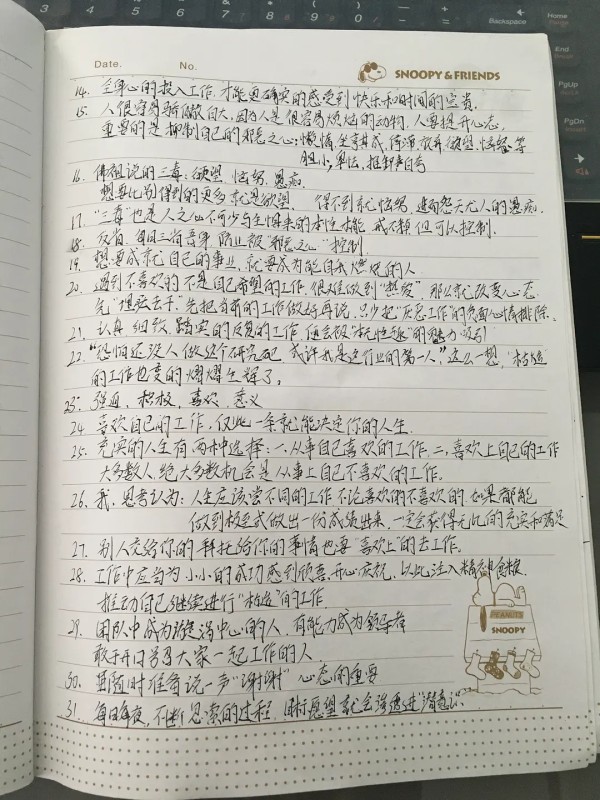 Backspace
Home
End
PgUp
PgDn
Date.
No.
SNOOPY & FRIENDS
14. 全身心的投入工作，才能更确实的感受到快乐和时间的宝贵。
15. 人很容易骄傲自大，因为人是很容易烦恼的动物，人要提升心态
重要的是抑制自己的邪恶之心：懒惰，坐享其成，欲望，恼怒等
胆小，卑怯，
16. 佛祖说的三毒：欲望 恼怒 愚痴
想要比别人得到的更多就是欲望、得不到就恼怒，进而怨天尤人的愚痴.
17. "三毒"也是人之心不可少与生俱来的本性本能 戒不掉但可以控制.
18. 反省 每日三省吾身 防止被"邪恶之心"控制.
19. 想要成就自己的事业，就要成为能自我燃烧的人
20. 遇到不喜欢的不是自己希望的工作，很难做到"热爱"那么就改变心态
先"埋头苦干"先把当前的工作做好再说，只少把"厌恶工作"的负面心情排除.
21. 认真 细致 踏实的反复的工作，便会被的魅力吸引
22. "恐怕还没人做这个研究吧 或许我是这行业的第一人，"这么一想，"枯燥
的工作也变的熠熠生辉了。
23. 强迫，积极，喜欢，意义
24. 喜欢自己的工作，仅此一条就能决定你的人生.
25. 充实的人生有两种选择：一. 从事自己喜欢的工作. 二，喜欢上自己的工作
大多数人，绝大多数机会是从事上自己不喜欢的工作.
26. 我、思考认为：人生应该尝不同的工作 不论喜欢的不喜欢的 如果都能
做到极致或做出一份成绩出来，一定会获得无比的充实和满足
27. 别人交给你的 拜托给你的事情也要"喜欢上"的去工作.
28. 工作中应当为小小的成功感到欣喜，开心庆祝，以此注入精神食粮.
推动自己继续进行"枯燥"的工作.
29. 团队中成为漩涡中心的人，有能力成为领导者
敢于开口号召大家一起工作的人
30. 随时准备说一声"谢谢" 心态的重要
31. 每日每夜，不断思索的过程. 目标愿望就会渗透进"潜意识.
PEANUTS
SNOOPY